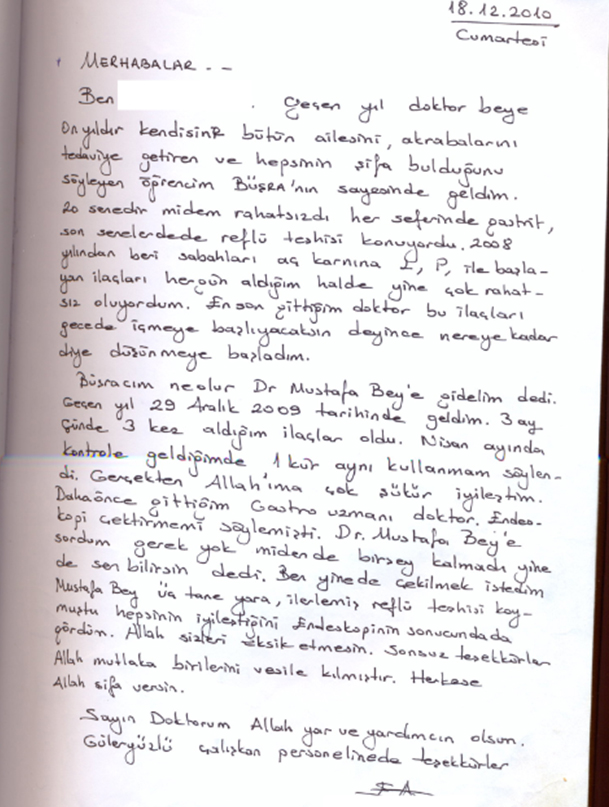 18.12.2010
Cumartesi
MERHABALAR . - -
Ben . Geçen yıl doktor beye
On yıldır kendisine bütün ailesini, akrabalarını
tedaviye getiren ve hepsinin şifa bulduğunu
söyleyen öğrencim BÜŞRA'nın sayesinde geldim.
20 senedir midem rahatsızdı her seferinde gastrit,
son senelerdede reflü teşhisi konuyordu. 2008
yılından beri sabahları aç karnına L, P, ile başla-
yan ilaçları hergün aldığım halde yine çok rahat-
sız oluyordum. En son gittiğim doktor bu ilaçları
gecede içmeye başlıyacaksın deyince nereye kadar
diye düşünmeye başladım.
Büşracım ne olur Dr Mustafa Bey'e gidelim dedi.
Geçen yıl 29 Aralık 2009 tarihinde geldim. 3 ay
günde 3 kez aldığım ilaçlar oldu. Nisan ayında
kontrole geldiğimde 1 kür aynı kullanmam söylen-
di. Gerçekten Allah'ıma çok şükür iyileştim.
Daha önce gittiğim Gastro uzmanı doktor. Endes-
kopi çektirmemi söylemişti. Dr. Mustafa Bey'e
sordum gerek yok midende birşey kalmadı yine
de sen bilirsin dedi. Ben yinede çekilmek istedim
Mustafa Bey üç tane yara, ilerlemiş reflü teşhisi koy-
muştu hepsinin iyileştiğini Endeskopinin sonucundada
gördüm. Allah sizleri eksik etmesin. Sonsuz teşekkürler
Allah mutlaka birilerini vesile kılmıştır. Herkese
Allah şifa versin.
Sayın Doktorum Allah yar ve yardımcın olsun.
Güleryüzlü çalışkan personelinede teşekkürler